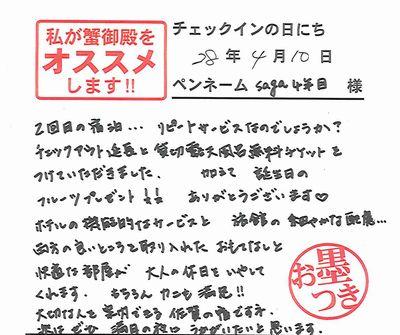 私が蟹御殿を
オススメ
します!!
チェックインの日にち
28年4月10日
ペンネーム saga4年目 様
2回目の宿泊… リピートサービスなのでしょうか?
チェックアウト延長と貸切露天風呂無料チケットを
つけていただきました。 加えて 誕生日の
フルーツプレゼント!! ありがとうございます♡
ホテルの機能的なサービスと 旅館の細やかな配慮…
両方の良いところを取り入れた おもてなしと
快適な部屋が 大人の休日をいやして
くれます。 もちろん カニも満足!!
大切な人と 実切できる 佐賀の宿です。
次は ぜひ 満月の夜に うかがいたいと思います。
お墨つき